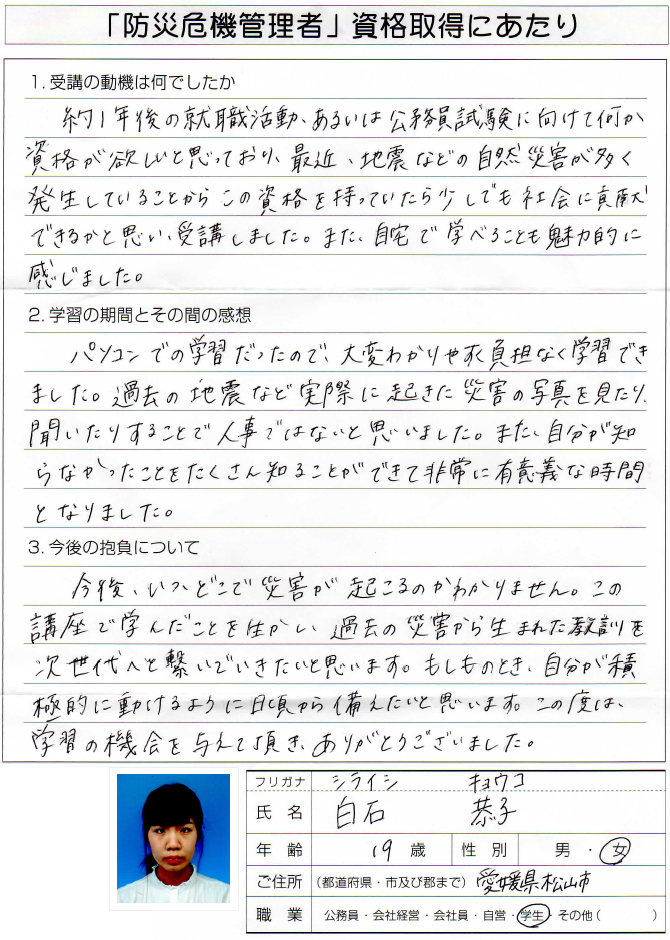 「防災危機管理者」資格取得にあたり
1.受講の動機は何でしたか
約1年後の就職活動、あるいは公務員試験に向けて何か
資格が欲しいと思っており、最近、地震などの自然災害が多く
発生していることからこの資格を持っていたら少しでも社会に貢献
できるかと思い、受講しました。また、自宅で学べることも魅力的に
感じました。
2.学習の期間とその間の感想
パソコンでの学習だったので、大変わかりやすく負担なく学習でき
ました。過去の地震など実際に起きた災害の写真を見たり、
聞いたりすることで人事ではないと思いました。また、自分が知
らなかったことをたくさん知ることができて非常に有意義な時間
となりました。
3.今後の抱負について
今後、いつ、どこで災害が起こるのかわかりません。この
講座で学んだことを生かし、過去の災害から生まれた教訓を
次世代へと繋いでいきたいと思います。もしものとき、自分が積
極的に動けるように日頃から備えたいと思います。この度は、
学習の機会を与えて頂き、ありがとうございました。
フリガナ シライシ キョウコ
氏名 白石 恭子
年齢 19歳 性別 男・女
ご住所 (都道府県・市及び郡まで) 愛媛県松山市
職業 公務員・会社経営・会社員・自営・学生・その他( )